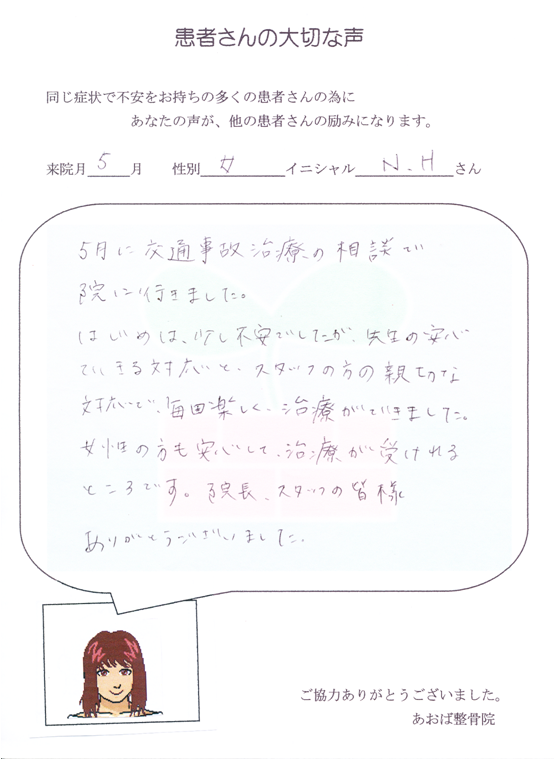 患者さんの大切な声
同じ症状で不安をお持ちの多くの患者さんの為に
あなたの声が、他の患者さんの励みになります。
来院月 5 月　性別 女 イニシャル N.H さん
5月に交通事故治療の相談で
院に行きました。
はじめは、少し不安でしたが、先生の安心
できる対応と、スタッフの方の親切な
対応で、毎回楽しく、治療ができました。
女性の方も安心して、治療が受けれる
ところです。院長、スタッフの皆様
ありがとうございました。
ご協力ありがとうございました。
あおば整骨院